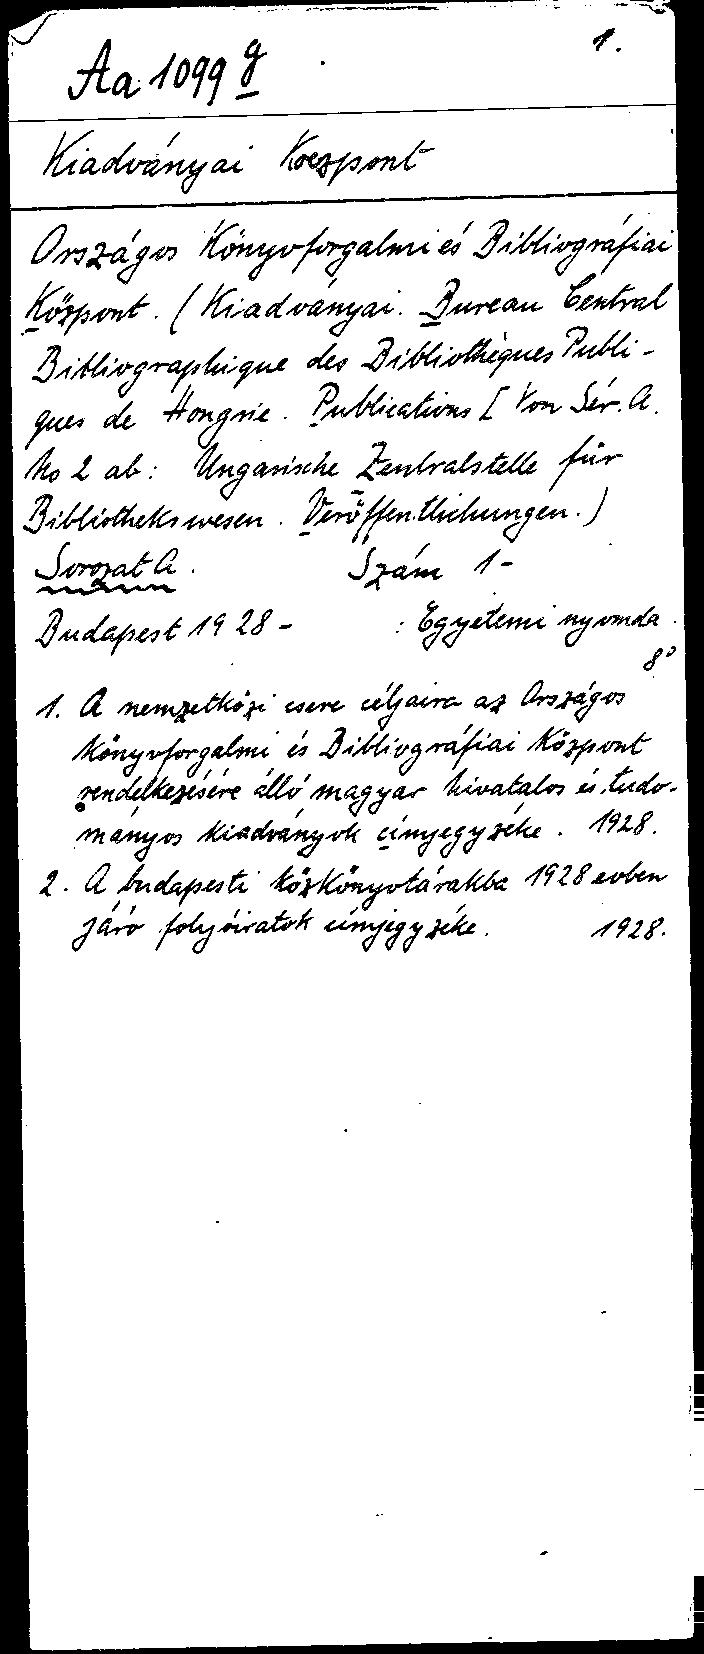 Aa 1099 g
1.
Kiadványai Koezpont
Országos Könyvforgalmi és Bibliográfiai
Központ. (Kiadványai. Bureau Central
Bibliographique des Bibliothèques Publi-
ques de Hongrie. Publications [Von Sér. A.
No 2 ab: Ungarische Zentralstelle für
Bibliothekswesen. Veröffentlichungen.)
Sorozat A. Szám 1-
Budapest 1928- : Egyetemi nyomda.
8°
1. A nemzetközi csere céljaira az Országos
Könyvforgalmi és Bibliográfiai Központ
rendelkezésére álló magyar hivatalos és tudo-
mányos kiadványok címjegyzéke. 1928.
2. A budapesti közkönyvtárakba 1928 evben
járó folyóiratok címjegyzéke. 1928.